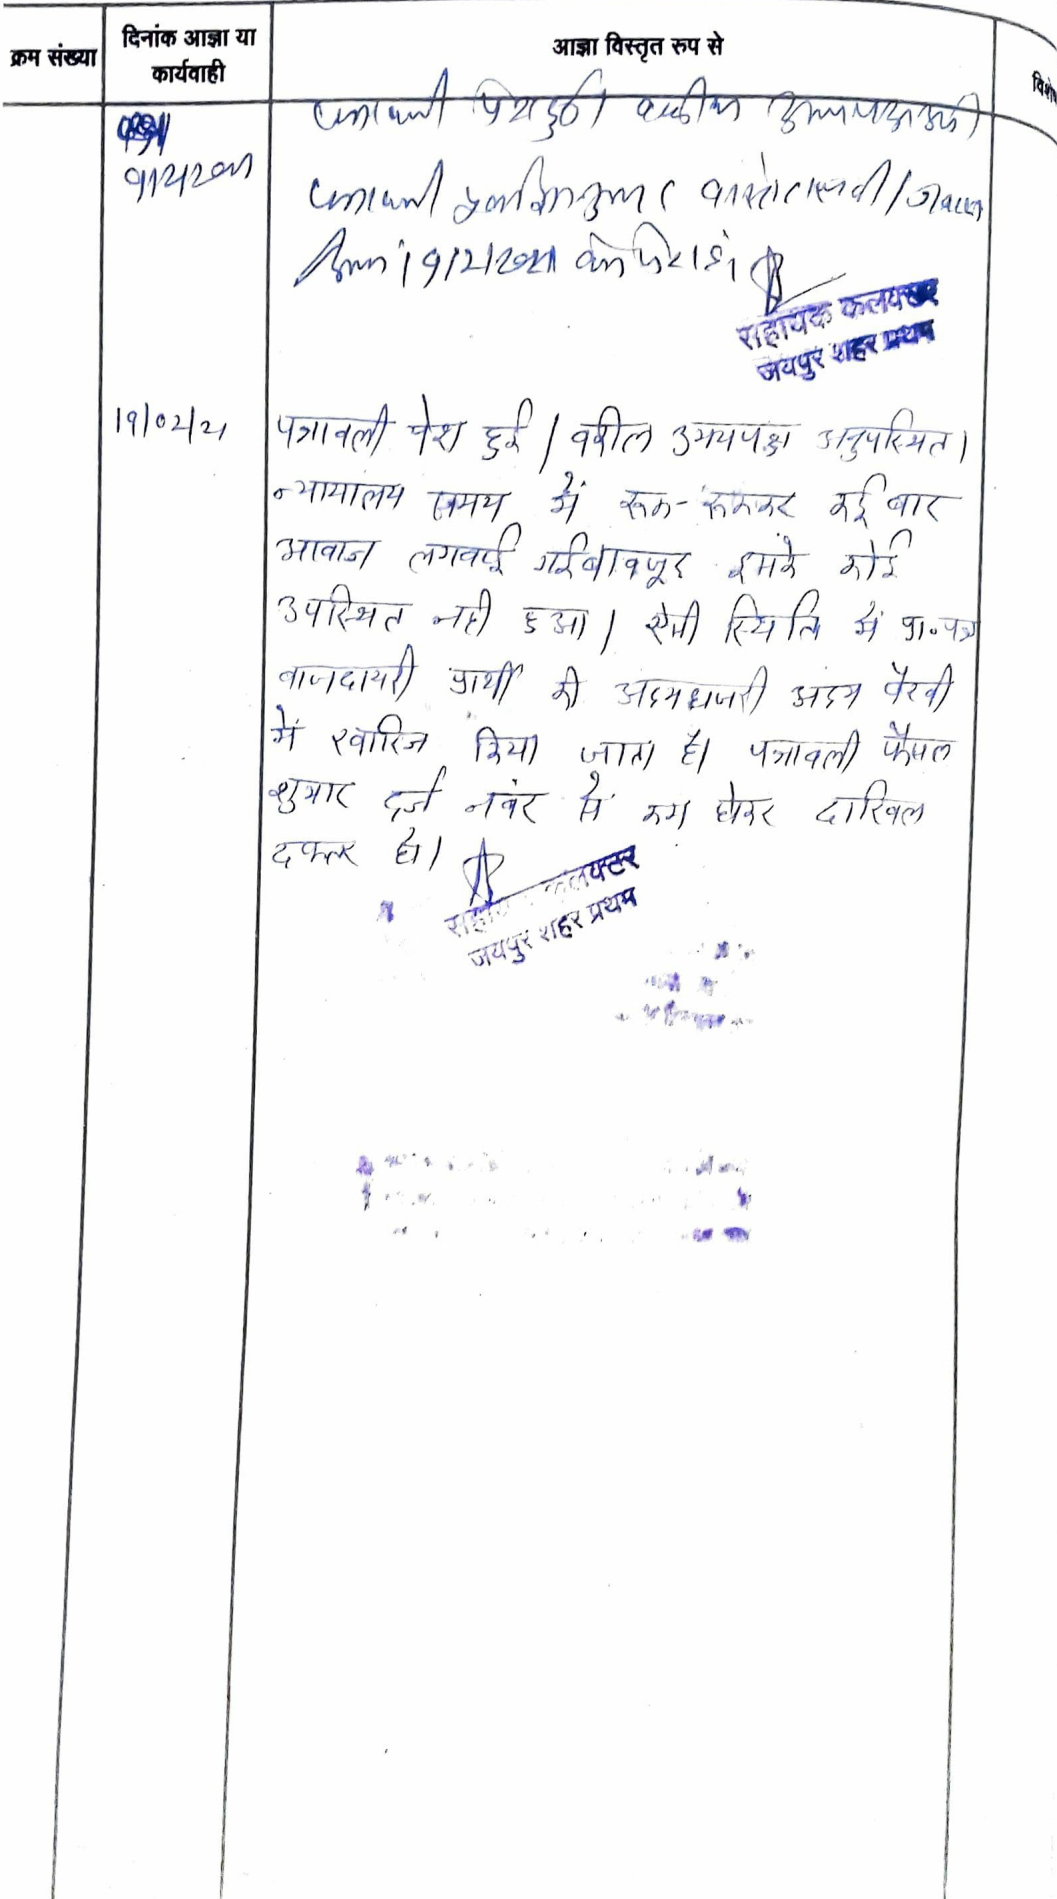 क्रम संख्या
दिनांक आज्ञा या
कार्यवाही
आज्ञा विस्तृत रुप से
पत्रावली पेश हुई। वकील
पत्रावली
9/2/2021
दिनांक 19/2/2021 को पेश हो।
सहायक कलक्टर
जयपुर शहर प्रथम
19/02/21
पत्रावली पेश हुई। वकील उभयपक्ष अनुपस्थित।
न्यायालय समय में रूक-रूककर कई बार
आवाज लगवाई गई बावजूद इसके कोई
उपस्थित नही हुआ। ऐसी स्थिति में प्रा॰पत्र
बाजदायरी प्रार्थी की अदमहाजरी अदम पैरवी
में खारिज किया जाता है। पत्रावली फैसल
शुमार दर्ज नबंर से कम होकर दाखिल
दफ्तर हो।
सहायक कलक्टर
जयपुर शहर प्रथम